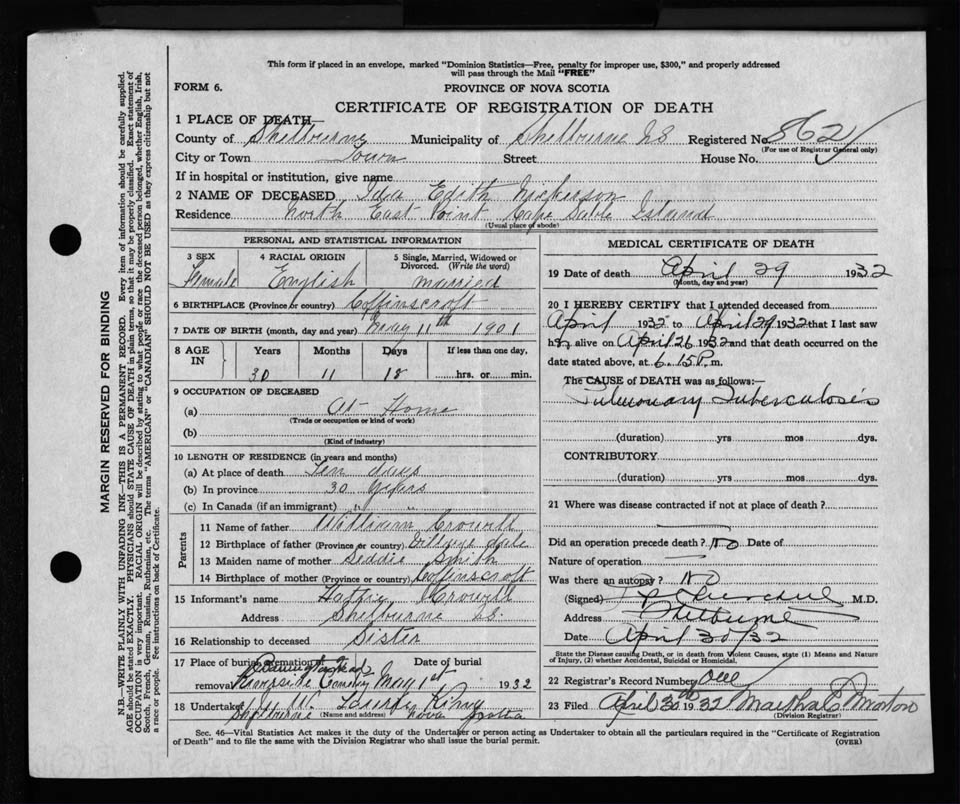 This form if placed in an envelope, marked "Dominion Statistics—Free, penalty for improper use, $300," and properly addressed
will pass through the Mail "FREE"
FORM 6.
PROVINCE OF NOVA SCOTIA
CERTIFICATE OF REGISTRATION OF DEATH
1 PLACE OF DEATH—
County of Shelburne Municipality of Shelburne NS Registered No. 862
(For use of Registrar General only)
City or Town Town Street House No.
If in hospital or institution, give name
2 NAME OF DECEASED Ida Edith Nickerson
Residence North East Point Cape Sable Island
(Usual place of abode)
PERSONAL AND STATISTICAL INFORMATION
3 SEX 4 RACIAL ORIGIN 5 Single, Married, Widowed or Divorced. (Write the word)
Female English married
6 BIRTHPLACE (Province or country) Coffinscroft
7 DATE OF BIRTH (month, day and year) May 11th 1901
8 AGE IN Years Months Days If less than one day,
30 11 18 hrs. or min.
9 OCCUPATION OF DECEASED
(a) At Home
(Trade or occupation or kind of work)
(b)
(Kind of industry)
10 LENGTH OF RESIDENCE (in years and months)
(a) At place of death Ten days
(b) In province 30 years
(c) In Canada (if an immigrant) " "
Parents
11 Name of father William Crowell
12 Birthplace of father (Province or country) Villagedale
13 Maiden name of mother Smith
14 Birthplace of mother (Province or country) Coffinscroft
15 Informant's name Crowell
Address Shelburne NS.
16 Relationship to deceased Sister
17 Place of burial, cremation or removal Riverside Cemetery Date of burial May 1st 1932
18 Undertaker
Shelburne (Name and address) Nova Scotia
MEDICAL CERTIFICATE OF DEATH
19 Date of death April 29 1932
(Month, day and year)
20 I HEREBY CERTIFY that I attended deceased from
April 1932 to April 29 1932 that I last saw
her alive on April 26 1932 and that death occurred on the
date stated above, at 6.15 P. m.
The CAUSE of DEATH was as follows:—
Pulmonary Tuberculosis
(duration) yrs mos dys.
CONTRIBUTORY
(duration) yrs mos dys.
21 Where was disease contracted if not at place of death?
Did an operation precede death? No Date of
Nature of operation
Was there an autopsy? No
(Signed) M.D.
Address Shelburne
Date April 30/32
State the Disease causing Death, or in death from Violent Causes, state (1) Means and
Nature of Injury, (2) whether Accidental, Suicidal or Homicidal.
22 Registrar's Record Number one
23 Filed April 30th 1932 Martha C. Morton
(Division Registrar)
Sec. 46—Vital Statistics Act makes it the duty of the Undertaker or person acting as Undertaker to obtain all the particulars required in the "Certificate of Registration
of Death" and to file the same with the Division Registrar who shall issue the burial permit.
(OVER)
MARGIN RESERVED FOR BINDING
N.B.—WRITE PLAINLY WITH UNFADING INK—THIS IS A PERMANENT RECORD. Every item of information should be carefully supplied.
AGE should be stated EXACTLY. PHYSICIANS should STATE CAUSE OF DEATH in plain terms, so that it may be properly classified. Exact statement of
OCCUPATION is very important. RACIAL ORIGIN will be described by stating to what people or race the deceased person belonged, whether English, Irish,
Scotch, French, German, Russian, Ruthenian, etc. The terms "AMERICAN" or "CANADIAN" SHOULD NOT BE USED as they express citizenship but not
a race or people. Fee instructions on back of Certificate.